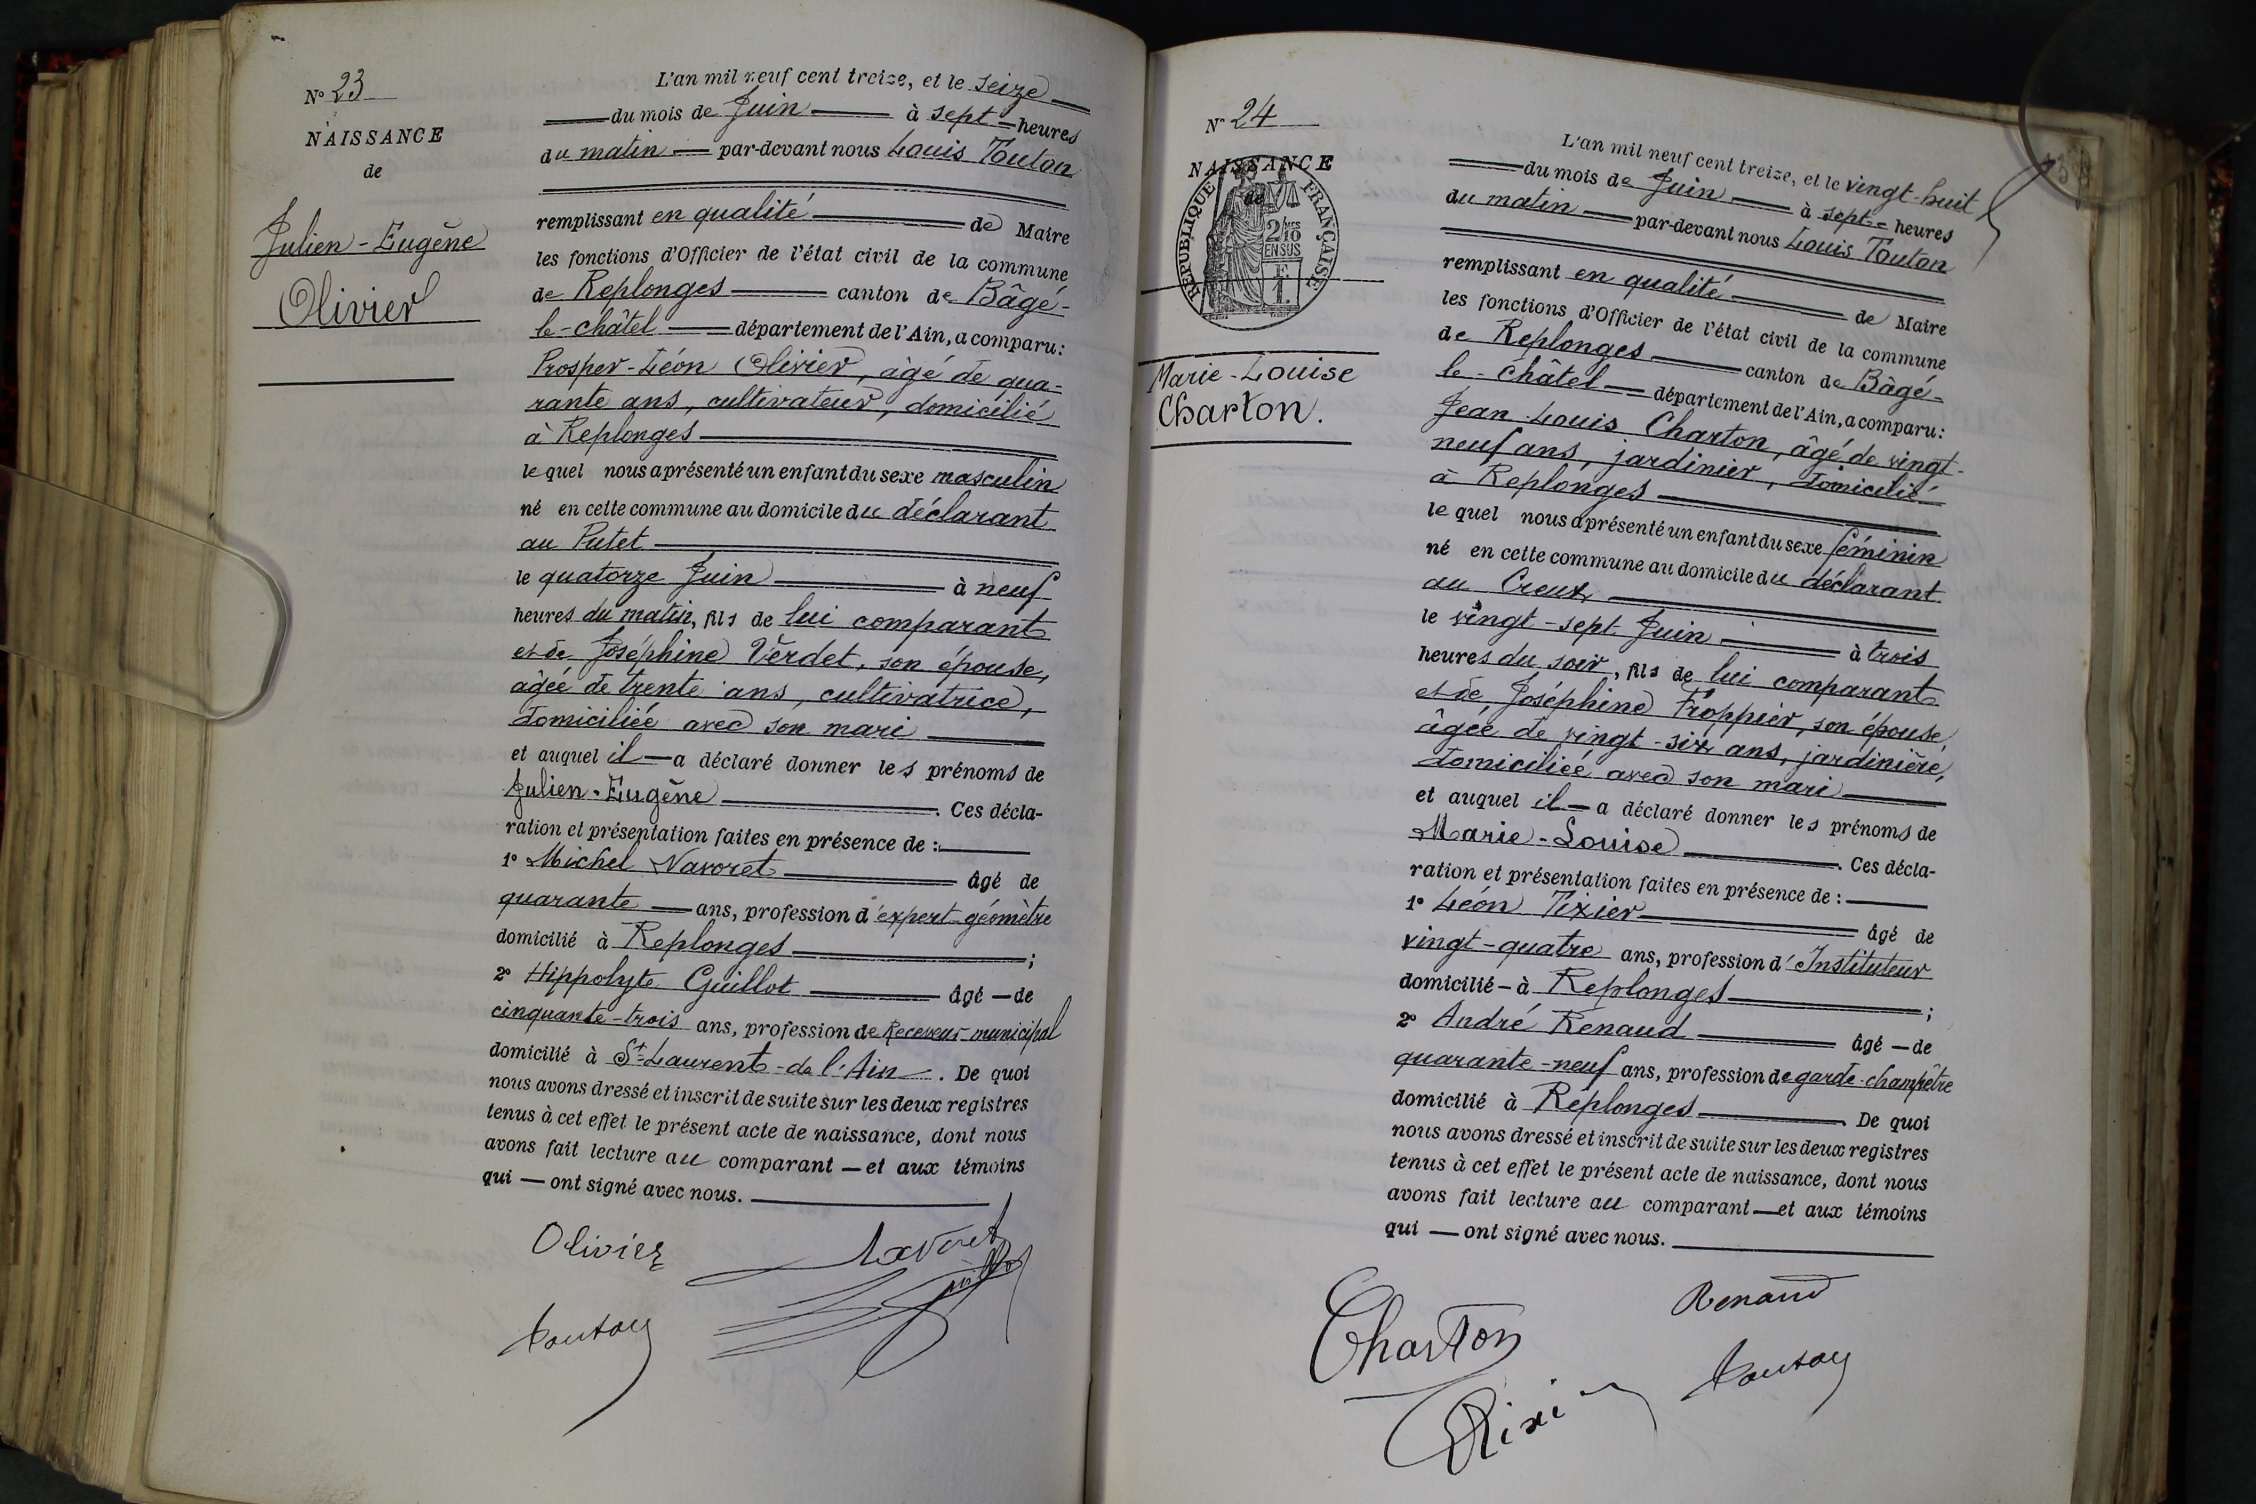 N° 23
NAISSANCE
de
Julien-Eugène
Olivier
L'an mil neuf cent treize, et le seize
du mois de Juin à sept heures
du matin par-devant nous Louis Touton
remplissant en qualité de Maire
les fonctions d'Officier de l'état civil de la commune
de Replonges canton de Bâgé-
le-châtel département de l'Ain, a comparu:
Prosper-Léon Olivier, âgé de qua=
rante ans, cultivateur, domicilié
à Replonges
le quel nous a présenté un enfant du sexe masculin
né en cette commune au domicile du déclarant
au Putet
le quatorze Juin à neuf
heures du matin, fils de lui comparant
et de Joséphine Verdet, son épouse,
âgée de trente ans, cultivatrice,
domiciliée avec son mari
et auquel il a déclaré donner les prénoms de
Julien-Eugène. Ces décla-
ration et présentation faites en présence de :
1° Michel Navoret âgé de
quarante ans, profession d'expert-géomètre
domicilié à Replonges ;
2° Hippolyte Guillot âgé de
cinquante-trois ans, profession de Receveur-municipal
domicilié à St-Laurent-de l'Ain. De quoi
nous avons dressé et inscrit de suite sur les deux registres
tenus à cet effet le présent acte de naissance, dont nous
avons fait lecture au comparant et aux témoins
qui ont signé avec nous.
Olivier Navoret
Touton
N° 24
NAISSANCE
de
REPUBLIQUE FRANÇAISE
2/10
EN SUS
Marie-Louise
Charton.
L'an mil neuf cent treize, et le vingt-huit
du mois de Juin à sept heures
du matin par-devant nous Louis Touton
remplissant en qualité de Maire
les fonctions d'Officier de l'état civil de la commune
de Replonges canton de Bâgé-
le-châtel département de l'Ain, a comparu:
Jean-Louis Charton, âgé de vingt-
neuf ans, jardinier, domicilié
à Replonges
le quel nous a présenté un enfant du sexe féminin
né en cette commune au domicile du déclarant
au Creux
le vingt-sept Juin à trois
heures du soir, fils de lui comparant
et de Joséphine Froppier, son épouse,
âgée de vingt-six ans, jardinière,
domiciliée avec son mari
et auquel il a déclaré donner les prénoms de
Marie-Louise. Ces décla-
ration et présentation faites en présence de :
1° Léon Tixier âgé de
vingt-quatre ans, profession d'Instituteur
domicilié à Replonges ;
2° André Renaud âgé de
quarante-neuf ans, profession de garde-champêtre
domicilié à Replonges. De quoi
nous avons dressé et inscrit de suite sur les deux registres
tenus à cet effet le présent acte de naissance, dont nous
avons fait lecture au comparant et aux témoins
qui ont signé avec nous.
Charton Renaud
Touton